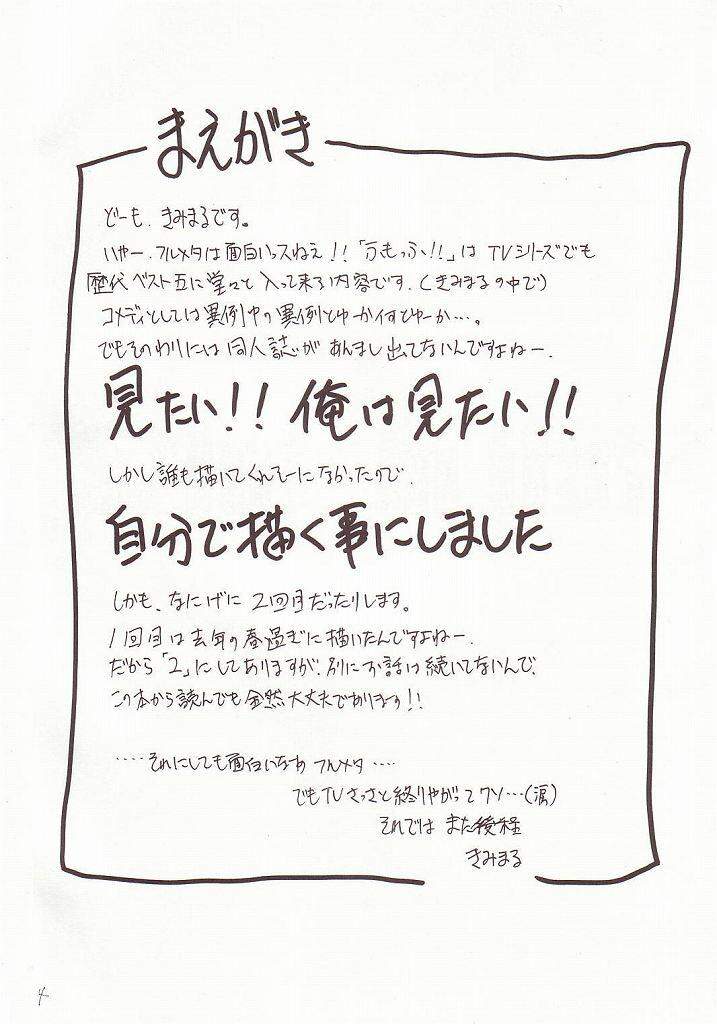 まえがき
どーも、きみまるです。
いやー、フルメタは面白いっスねえ!!「ふもっふ!!」は TVシリーズでも
歴代ベスト五に堂々と入って来る内容です。(きみまるの中で)
コメディとしては異例中の異例とゆーかイすとゆーか…。
でもそのわりには同人誌があんまし出てないんですよねー、
見たい!! 俺は見たい!!
しかし誰も描いてくれそーになかったので、
自分で描く事にしました
しかも、なにげに2回目だったりします。
1回目は去年の春過ぎに描いたんですよねー、
だから「2」にしてありますが、別にお話は続いてないんで、
この本から読んでも全然大丈夫であります!!
‥‥それにしても面白いなあ フルメタ‥‥
でもTVさっさと終りやがって クソ…(涙)
それでは また後程
きみまる
4